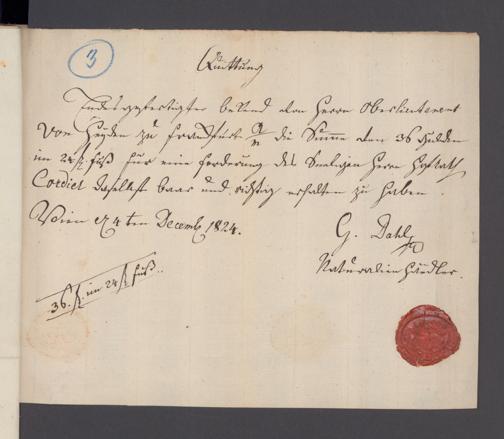 3
Quittung
Endesgefertigter bekennt von Herrn Oberlieutenant
von Heyden zu Frankfurt a/m die Summe von 36 Gulden
im 24 f fuß für eine Forderung des Seeligen Herrn Hofrath
daselbst baar und richtig erhalten zu haben.
Wien 24ten Decemb 1824.
G. Dahl
Naturalienhändler.
36 f im 24 f fuß.